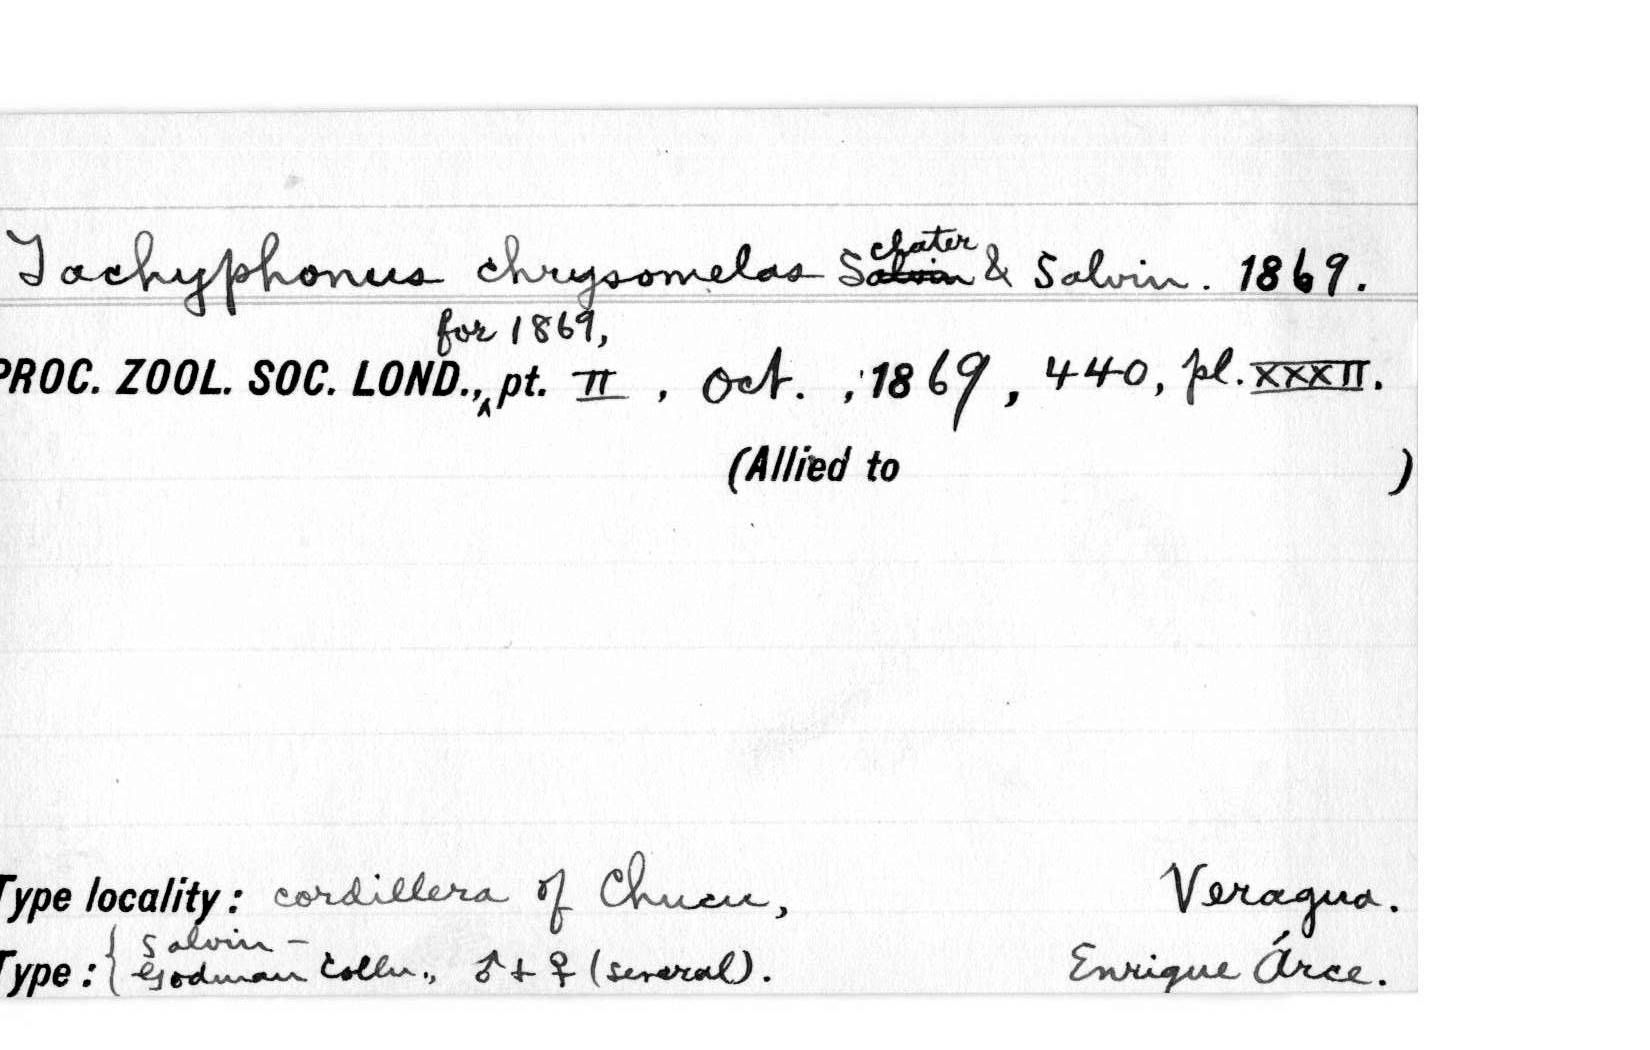 Tachyphonus chrysomelas Sclater & Salvin. 1869.
for 1869,
PROC. ZOOL. SOC. LOND., pt. II, Oct., 1869, 440, pl. XXXII.
(Allied to )
Type locality: cordillera of Chucu, Veragua.
Salvin-
Type: Godman Colln., ♂ + ♀ (several). Enrique Árce.